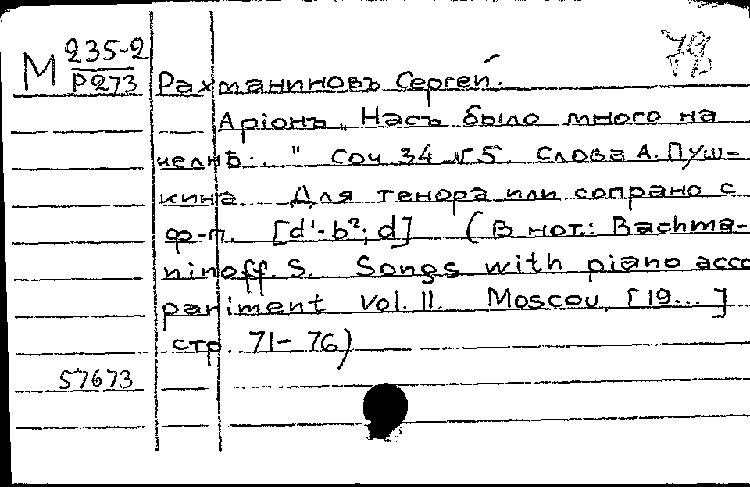 М 235-2
Р273
78
Рахманиновъ Сергей.
Аріонъ „Насъ было много на
челнѣ..." Соч. 34 №5. Слова А. Пуш-
кина. Для тенора или сопрано с
ф-п. [d'-b²; d] (В нот.: Rachma-
ninoff. S. Songs with piano acco
paniment Vol. II. Moscou, [19...]
стр. 71-76)
57673